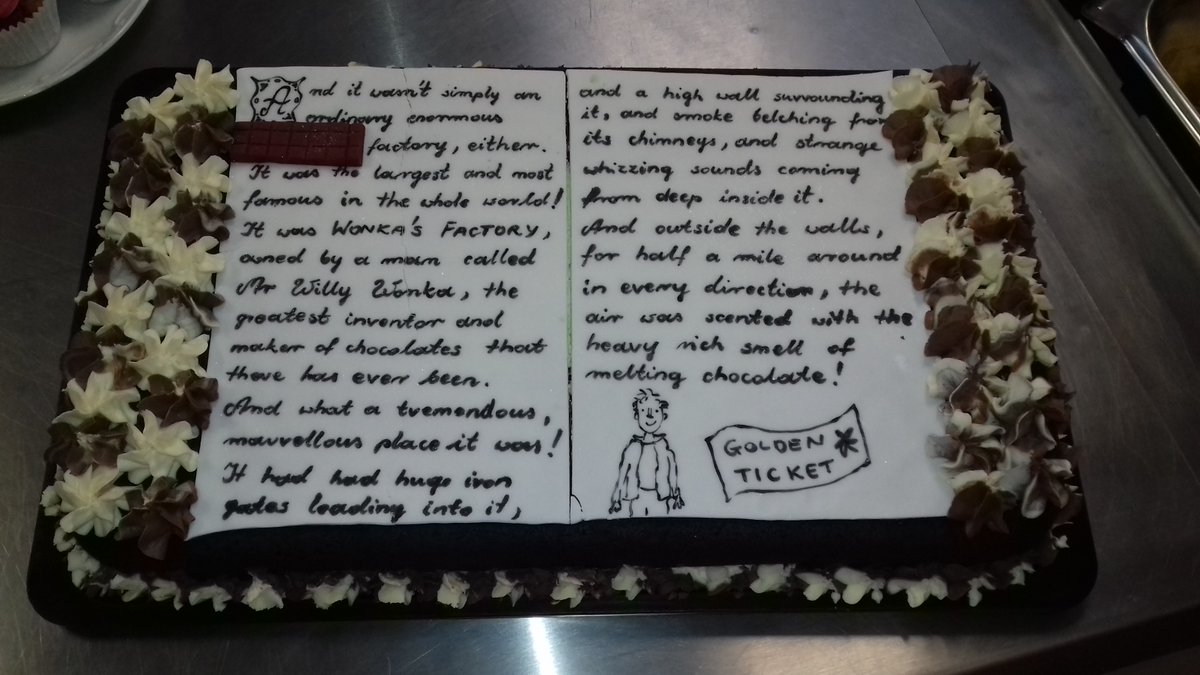 And it wasn't simply an
ordinary enormous
factory, either.
It was the largest and most
famous in the whole world!
It was WONKA'S FACTORY,
owned by a man called
Mr Willy Wonka, the
greatest inventor and
maker of chocolates that
there has ever been.
And what a tremendous,
marvellous place it was!
It had had huge iron
gates leading into it,
and a high wall surrounding
it, and smoke belching from
its chimneys, and strange
whizzing sounds coming
from deep inside it.
And outside the walls,
for half a mile around
in every direction, the
air was scented with the
heavy rich smell of
melting chocolate!
GOLDEN
TICKET